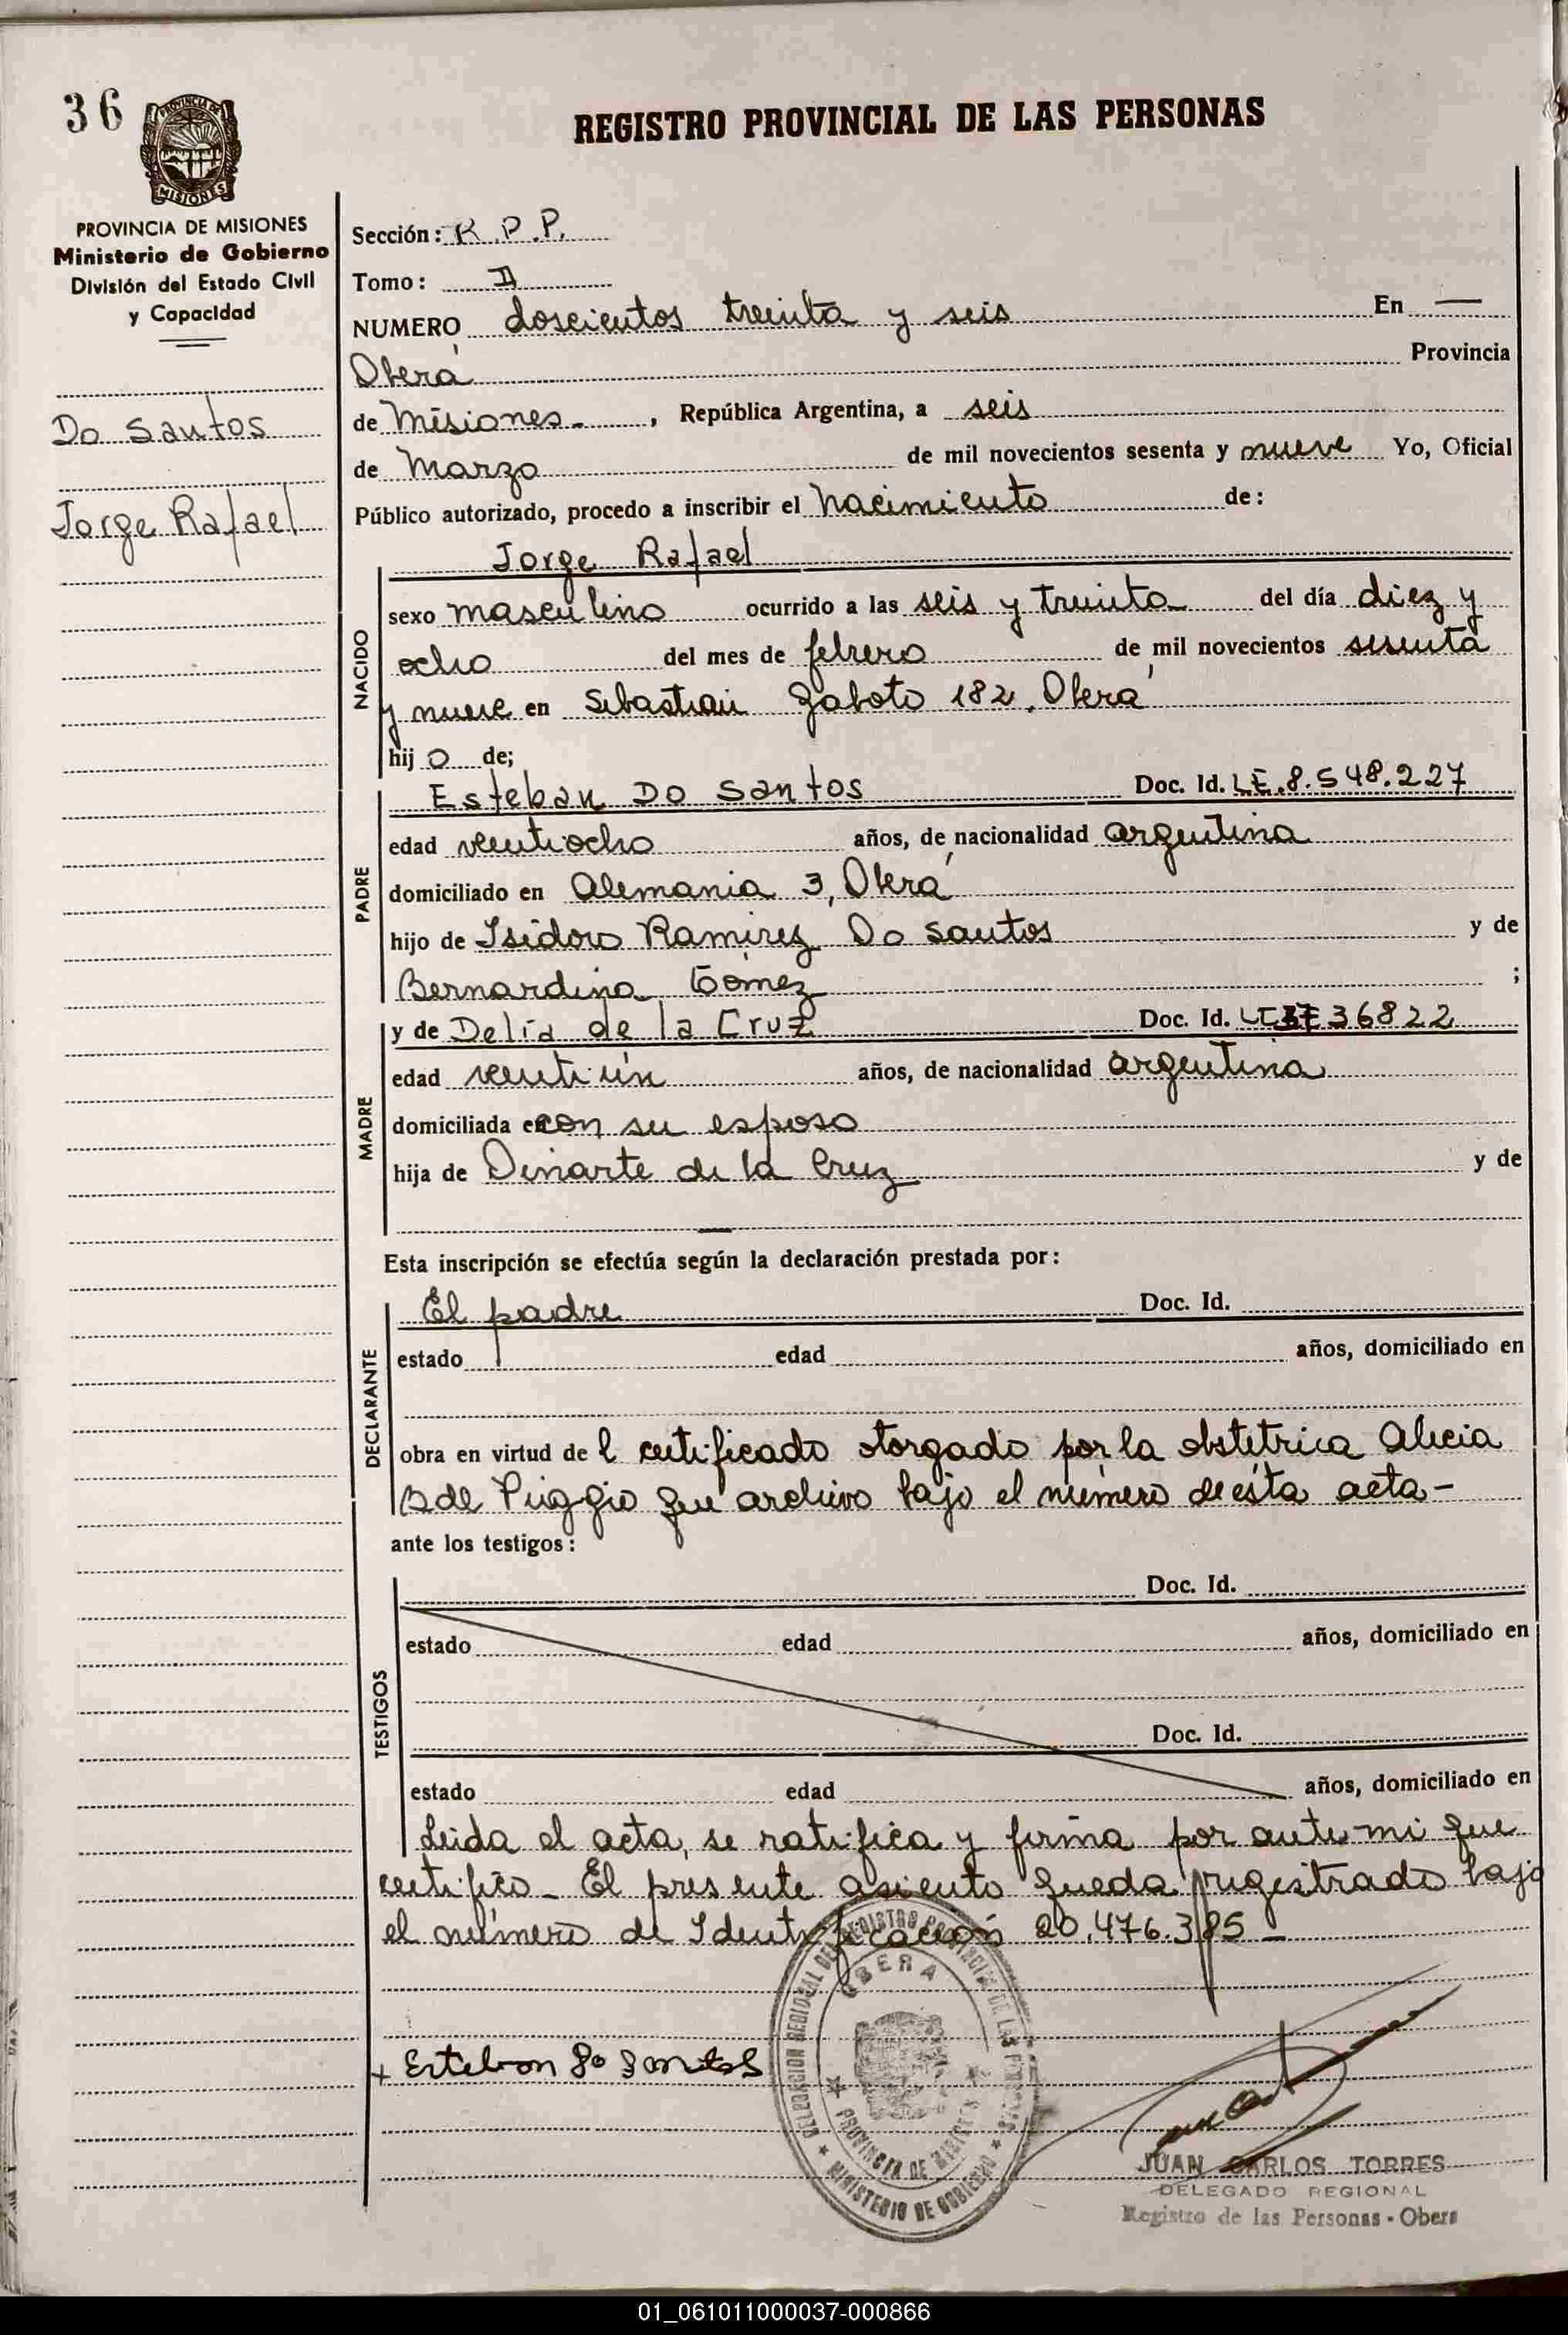 36
PROVINCIA DE
MISIONES
REGISTRO PROVINCIAL DE LAS PERSONAS
PROVINCIA DE MISIONES
Ministerio de Gobierno
División del Estado Civil
y Capacidad
Do Santos
Jorge Rafael
Sección: R.P.P.
Tomo: II
NUMERO doscientos treinta y seis En —
Oberá Provincia
de Misiones-, República Argentina, a seis
de Marzo de mil novecientos sesenta y nueve Yo, Oficial
Público autorizado, procedo a inscribir el nacimiento de:
Jorge Rafael
NACIDO
sexo masculino ocurrido a las seis y treinta del día diez y
ocho del mes de febrero de mil novecientos sesenta
y nueve en Sebastian Gaboto 182, Oberá
hij o de;
PADRE
Esteban Do Santos Doc. Id. LE.8.548.227
edad veintiocho años, de nacionalidad argentina
domiciliado en Alemania 3, Oberá
hijo de Isidoro Ramirez Do Santos y de
Bernardina Gómez ;
MADRE
y de Delia de la Cruz Doc. Id. 36822
edad veintiún años, de nacionalidad argentina
domiciliada en con su esposo
hija de de la Cruz y de
—
Esta inscripción se efectúa según la declaración prestada por:
DECLARANTE
El padre Doc. Id.
estado edad años, domiciliado en
obra en virtud de l certificado otorgado por la obstétrica Alicia
de Piaggio que archivo bajo el número de ésta acta-
ante los testigos:
TESTIGOS
Doc. Id.
estado edad años, domiciliado en
Doc. Id.
estado edad años, domiciliado en
Leida el acta, se ratifica y firma por ante mi que
certifico- El presente asiento queda registrado bajo
el número de Identificación 20.476.385-
DELEGACION REGIONAL DEL REGISTRO PROVINCIAL DE LAS PERSONAS
OBERA
PROVINCIA DE MISIONES
MINISTERIO DE GOBIERNO
+ Esteban Do Santos
JUAN CARLOS TORRES
DELEGADO REGIONAL
Registro de las Personas - Obera
01_061011000037-000866